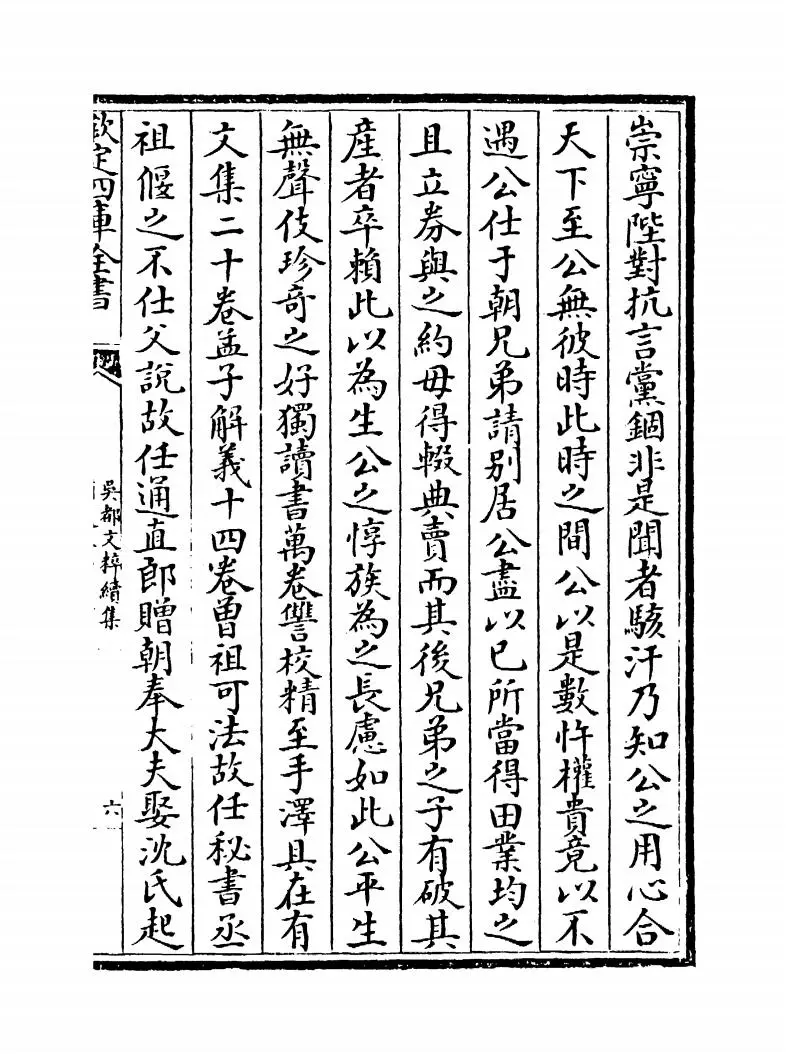 崇寧陛對抗言黨錮非是聞者駭汗乃知公之用心合
天下至公無彼時此時之間公以是數忤權貴竟以不
遇公仕于朝兄弟請别居公盡以已所當得田業均之
且立券與之約毋得輟典賣而其後兄弟之子有破其
産者卒賴此以為生公之惇族為之長慮如此公平生
無聲伎珍竒之好獨讀書萬卷讐校精至手澤具在有
文集二十卷孟子解義十四卷曽祖可法故任秘書丞
祖偃之不仕父說故任通直郎贈朝奉大夫娶沈氏起
欽定四庫全書
吳都文粹續集
六